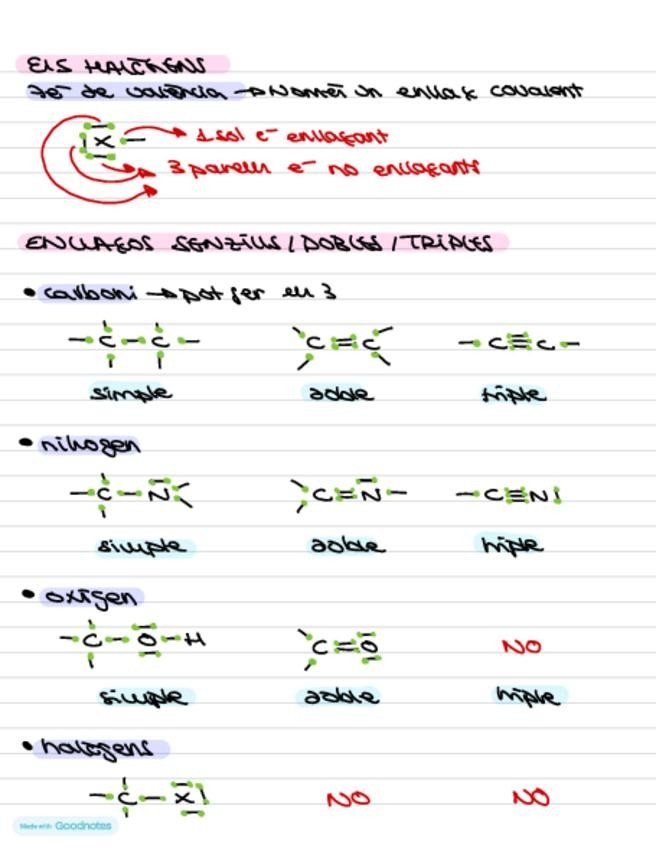 ELS HALÒGENS
7e⁻ de valència → Només un enllaç covalent
X → 1 sol e⁻ enllaçant
3 parells e⁻ no enllaçants
ENLLAÇOS SENZILLS / DOBLES / TRIPLES
• carboni → pot fer els 3
–C–C– C=C –C≡C–
simple doble triple
• nitrogen
–C–N C=N– –C≡N
simple doble triple
• oxigen
–C–O–H C=O NO
simple doble triple
• halògens
–C–X NO NO
Made with Goodnotes